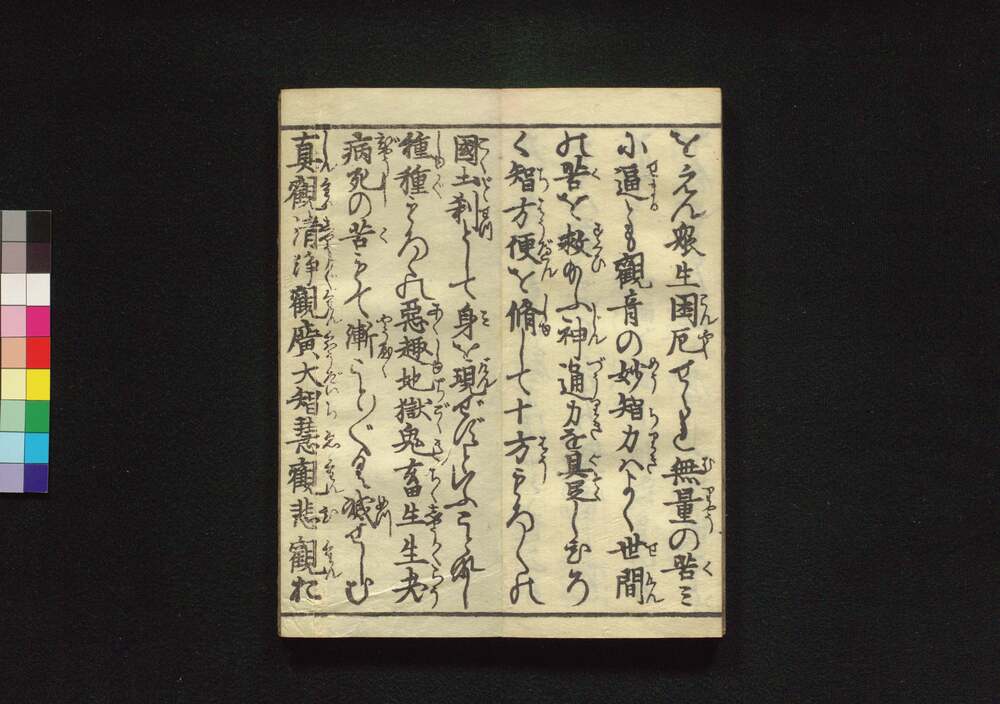 をえん衆生困厄せられ無量の苦み
に逼とも觀音の妙智力はよく世間
の苦を救たまふ神通力を具足しひろ
く智方便を脩して十方もろ〳〵の
國土刹として身を現ぜずといふことなし
種種もろ〳〵の惡趣地獄鬼畜生生老
病死の苦もて漸こと〴〵く滅せしむ
真觀清浄觀廣大智慧觀悲觀お